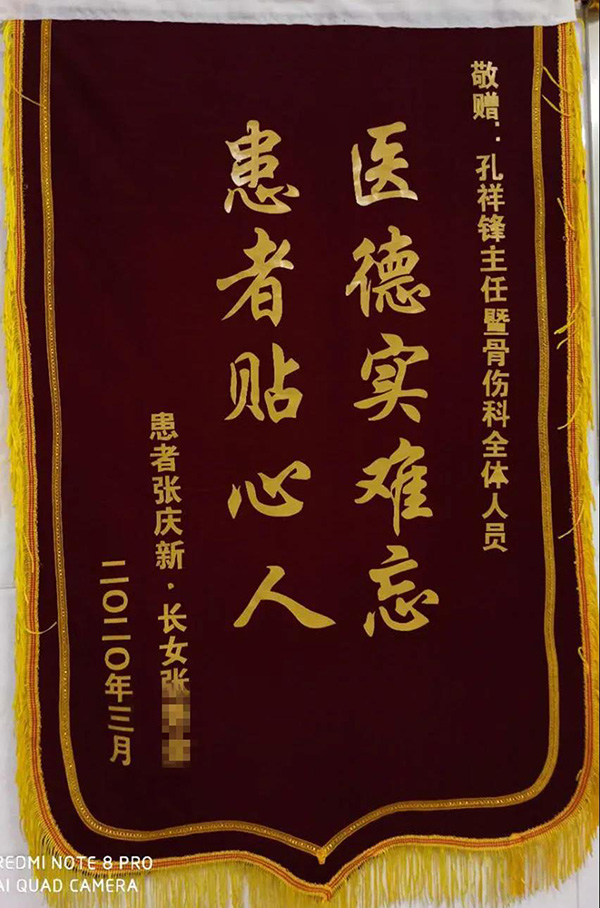 敬赠：孔祥锋主任暨骨伤科全体人员
医德实难忘
患者贴心人
患者张庆新·长女张
二〇二〇年三月
REDMI NOTE 8 PRO
AI QUAD CAMERA